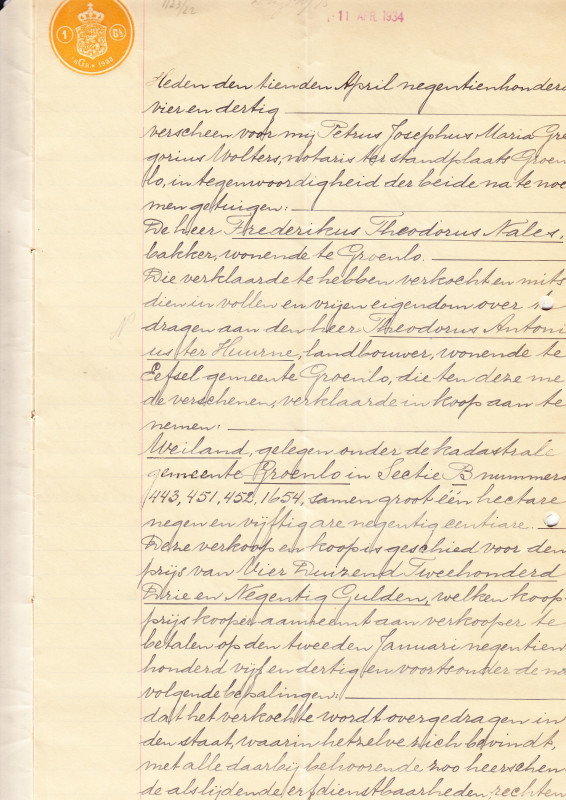 11 APR. 1934
1
Gld
Heden den tienden April negentienhonderd
vier en dertig
verscheen voor mij Petrus Josephus Maria Gre
gorius Wolters, notaris ter standplaats Groen
lo, in tegenwoordigheid der beide na te noe
men getuigen:
De heer Frederikus Theodorus Nales,
bakker, wonende te Groenlo.
Die verklaarde te hebben verkocht en mits
dien in vollen en vrijen eigendom over te
dragen aan den heer Theodorus Antoni
us ter Huurne, landbouwer, wonende te
Eefsel gemeente Groenlo, die ten deze me
de verschenen, verklaarde in koop aan te
nemen:
Weiland, gelegen onder de kadastrale
gemeente Groenlo in Sectie B nummers
443, 451, 452, 1654, samen groot één hectare
negen en vijftig are negentig centiare.
Deze verkoop en koop is geschied voor den
prijs van Vier Duizend Tweehonderd
Drie en Negentig Gulden, welken koop
prijs kooper aanneemt aan verkooper te
betalen op den tweeden Januari negentien
honderd vijf en dertig en voorts onder de na
volgende bepalingen:
dat het verkochte wordt overgedragen in
den staat, waarin hetzelve zich bevindt,
met alle daarbij behoorende zoo heerschen
de als lijdende erfdienstbaarheden, rechten